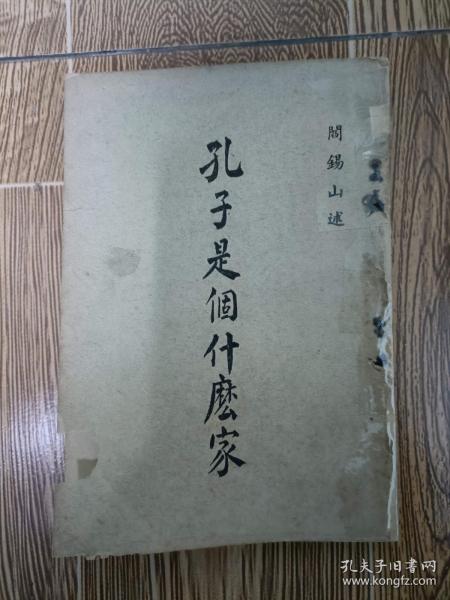 閻錫山述
孔子是個什麽家
孔夫子旧书网
www.kongfz.com